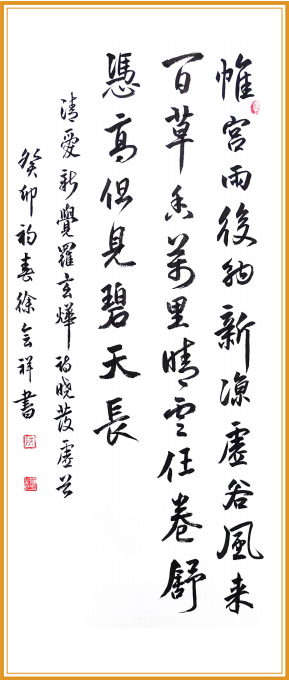 帷宫雨後納新涼虚谷风来
百草香萬里晴雲任卷舒
憑高但見碧天長
清愛新覺羅玄燁詩晓發虚谷
癸卯初春徐会祥書